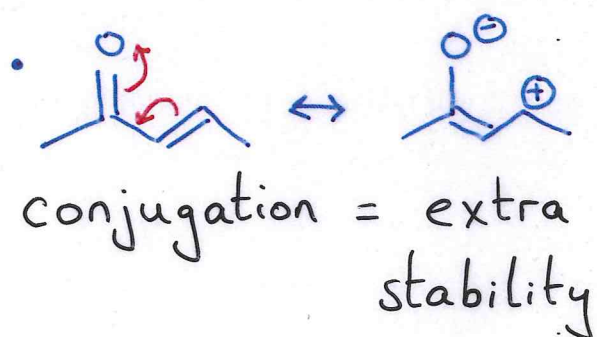 O O ⊖
⊕
conjugation = extra
stability